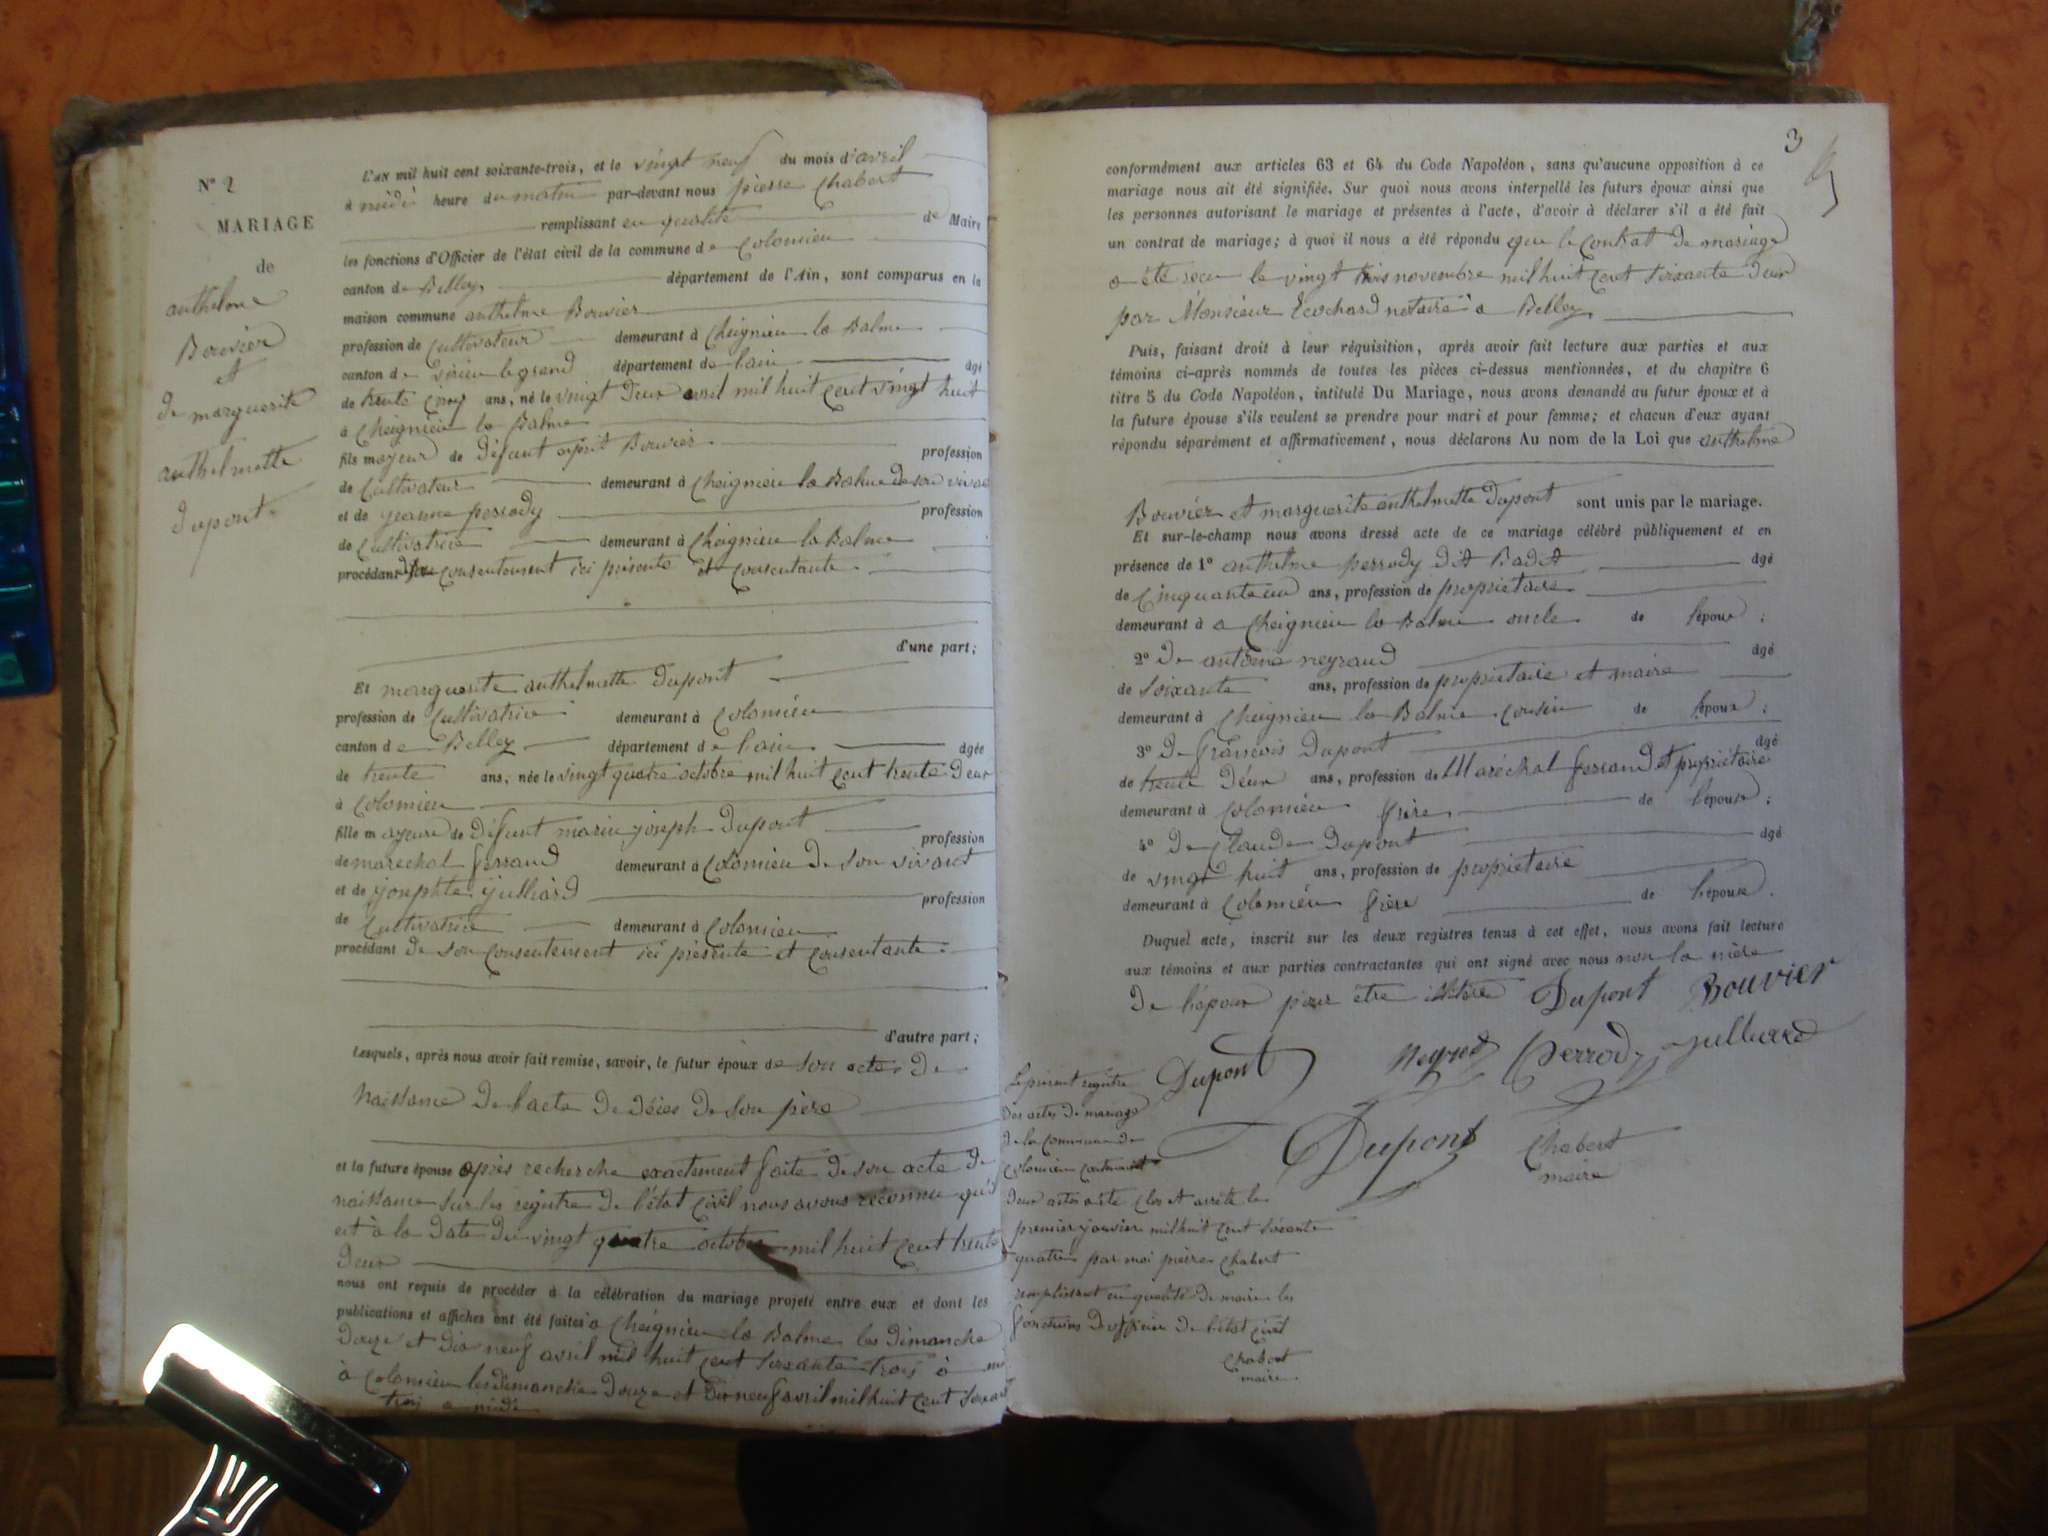 N° 2
MARIAGE
de
anthelme
Bouvier
et
de marguerite
anthelmette
dupont
L'AN mil huit cent soixante-trois, et le vingt neuf du mois d'avril
à midi heure du matin par-devant nous pierre Chabert
remplissant en qualité de Maire
les fonctions d'Officier de l'état civil de la commune de Colomieu
canton de Belley département de l'Ain, sont comparus en la
maison commune anthelme Bouvier
profession de Cultivateur demeurant à Cheignieu la Balme
canton de virieu le grand département de lain âgé
de trente cinq ans, né le vingt deux avril mil huit cent vingt huit
à Cheignieu la Balme
fils mayeur de défunt esprit Bouvier profession
de Cultivateur demeurant à Cheignieu la Balme de son vivant
et de jeanne perrody profession
de Cultivatrice demeurant à Cheignieu la Balme
procédant consentement ici présente et consentante
d'une part;
Et marguerite anthelmette dupont
profession de Cultivatrice demeurant à Colomieu
canton de Belley département de lain âgée
de trente ans, née le vingt quatre octobre mil huit cent trente deux
à Colomieu
fille mayeure de défunt marin joseph dupont profession
de marechal ferrand demeurant à Colomieu de son vivant
et de josephte julliard profession
de Cultivatrice demeurant à Colomieu
procédant de son consentement ici présente et consentante
d'autre part;
Lesquels, après nous avoir fait remise, savoir, le futur époux de son acte de
naissance de l'acte de décès de son père
et la future épouse après recherche exactement faite de son acte de
naissance sur les registre de l'état civil nous avons reconnu qu'il
est à la date du vingt quatre octobre mil huit cent trente
deux
nous ont requis de procéder à la célébration du mariage projeté entre eux et dont les
publications et affiches ont été faites à Cheignieu la Balme les dimanche
douze et dix neuf avril mil huit cent soixante trois à
à Colomieu les dimanche douze et dix neuf avril mil huit cent soixante
trois a midi
3
conformément aux articles 63 et 64 du Code Napoléon, sans qu'aucune opposition à ce
mariage nous ait été signifiée. Sur quoi nous avons interpellé les futurs époux ainsi que
les personnes autorisant le mariage et présentes à l'acte, d'avoir à déclarer s'il a été fait
un contrat de mariage; à quoi il nous a été répondu que le Contrat de mariage
a été recu le vingt trois novembre mil huit cent soixante deux
par Monsieur Ecochard notaire à Belley
Puis, faisant droit à leur réquisition, après avoir fait lecture aux parties et aux
témoins ci-après nommés de toutes les pièces ci-dessus mentionnées, et du chapitre 6
titre 5 du Code Napoléon, intitulé Du Mariage, nous avons demandé au futur époux et à
la future épouse s'ils veulent se prendre pour mari et pour femme; et chacun d'eux ayant
répondu séparément et affirmativement, nous déclarons Au nom de la Loi que anthelme
Bouvier et marguerite anthelmette dupont sont unis par le mariage.
Et sur-le-champ nous avons dressé acte de ce mariage célébré publiquement et en
présence de 1° anthelme perrody dit Badit âgé
de Cinquante un ans, profession de propriétaire
demeurant à a Cheignieu la Balme oncle de lépoux;
2° de antoine neyraud âgé
de soixante ans, profession de propriétaire et maire
demeurant à Cheignieu la Balme cousin de lépoux;
3° de francois dupont âgé
de trente deux ans, profession de Maréchal ferrand et propriétaire
demeurant à Colomieu frère de lépouse;
4° de Claude dupont âgé
de vingt huit ans, profession de propriétaire
demeurant à Colomieu frère de lépouse.
Duquel acte, inscrit sur les deux registres tenus à cet effet, nous avons fait lecture
aux témoins et aux parties contractantes qui ont signé avec nous non la mère
de l'époux pour être illétrée Dupont Bouvier
Dupont Perrody julliard
Dupont Chabert
maire
Le présent registre
des actes de mariage
de la Commune de
Colomieu contenant
deux actes a été clos et arrêté le
premier janvier mil huit cent soixante
quatre par moi pierre Chabert
remplissant en qualité de maire les
fonctions d'officier de l'état civil
Chabert
maire